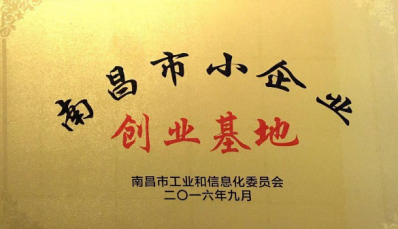 南昌市小企业
创业基地
南昌市工业和信息化委员会
二〇一六年九月